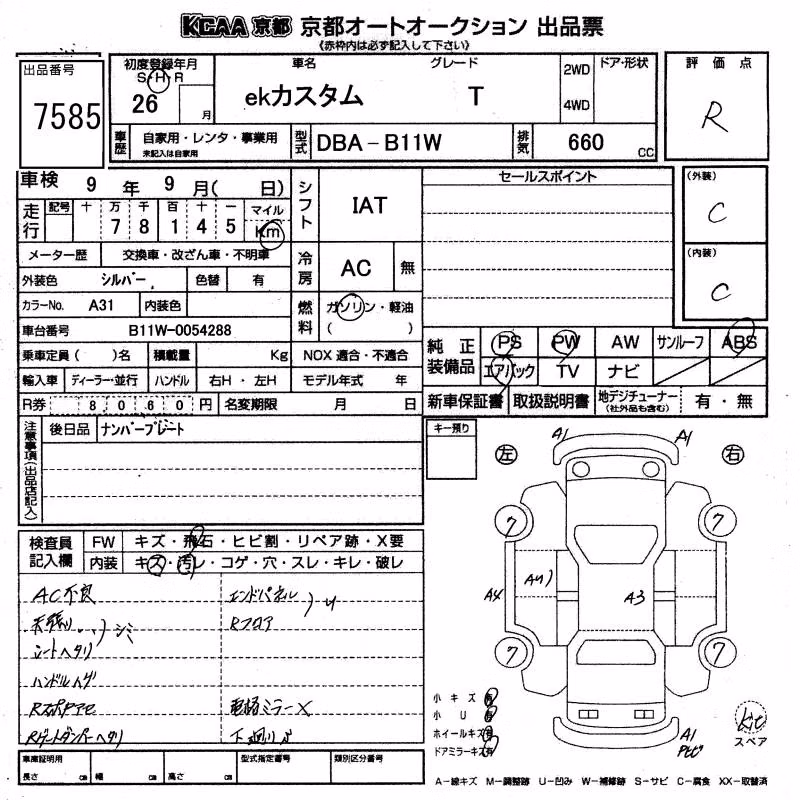 KCAA 京都 京都オートオークション 出品票
《赤枠内は必ず記入して下さい》
出品番号
7585
初度登録年月
S・H・R
26 月
車名
グレード
ekカスタム T
2WD
4WD
ドア・形状
評価点
R
車歴
自家用・レンタ・事業用
未記入は自家用
型式
DBA-B11W
排気
660 CC
車検 9年 9月( 日)
走行
記号 十 万 千 百 十 一 マイル
7 8 1 4 5 Km
シフト
IAT
セールスポイント
(外装)
C
(内装)
C
メーター歴 交換車・改ざん車・不明車
外装色 シルバー 色替 有
冷房
AC 無
カラーNo. A31 内装色
燃料
ガソリン・軽油
( )
車台番号 B11W-0054288
乗車定員( )名 積載量 Kg NOX 適合・不適合
輸入車 ディーラー・並行 ハンドル 右H・左H モデル年式 年
R券 8060円 名変期限 月 日
純正装備品
PS PW AW サンルーフ ABS
エアバック TV ナビ
新車保証書 取扱説明書 地デジチューナー(社外品も含む) 有・無
注意事項(出品店記入)
後日品 ナンバープレート
キー預り
左 右
A1 A1
7 7
A4 A3
7 7
A1
検査員記入欄
FW キズ・飛石・ヒビ割・リペア跡・X要
内装 キズ・汚レ・コゲ・穴・スレ・キレ・破レ
AC不良 エンドパネル
天張り シミ Rフロア
シートヘタリ
ハンドルハゲ
電格ミラーX
Rゲートダンパーヘタリ
小キズ有
小U有
ホイールキズ有
ドアミラーキズ有
スペア
車庫証明用
長さ cm 幅 cm 高さ cm
型式指定番号
類別区分番号
A-線キズ M-調整跡 U-凹み W-補修跡 S-サビ C-腐食 XX-取替済